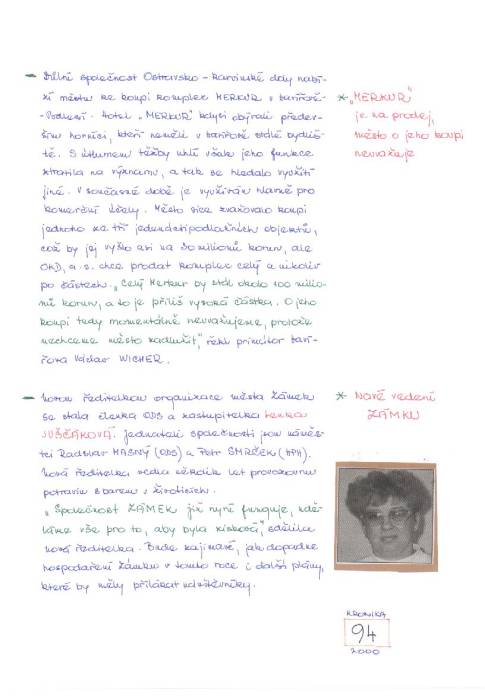 - Důlní společnost Ostravsko-karvinské doly nabí-
zí městu ke koupi komplex MERKUR v Havířově-
-Podlesí. Hotel „MERKUR" kdysi obývali přede-
vším horníci, kteří neměli v Havířově stálé bydliš-
tě. S útlumem těžby uhlí však jeho funkce
ztratila na významu, a tak se hledalo využití
jiné. V současné době je využíván hlavně pro
komerční účely. Město sice zvažovalo koupi
jednoho ze tří jedenáctipodlažních objektů,
což by jej vyšlo asi na 30 milionů korun, ale
OKD, a.s. chce prodat komplex celý a nikoliv
po částech. „Celý Merkur by stál okolo 100 milio-
nů korun, a to je příliš vysoká částka. O jeho
koupi tedy momentálně neuvažujeme, protože
nechceme město zadlužit," řekl primátor Haví-
řova Václav WICHER.
* „MERKUR"
je na prodej,
město o jeho koupi
neuvažuje
- Novou ředitelkou organizace města Zámek
se stala členka ODS a zastupitelka Lenka
JUŠČÁKOVÁ. Jednateli společnosti jsou náměst-
ci Radoslav MASNÝ (ODS) a Petr SMRČEK (HPH).
Nová ředitelka vedla několik let provozovnu
potravin s barem v Životicích.
„Společnost ZÁMEK již nyní funguje, udě-
láme vše pro to, aby byla zisková," sdělila
nová ředitelka. Bude zajímavé, jak dopadne
hospodaření Zámku v tomto roce i další plány,
které by měly přilákat návštěvníky.
* Nové vedení
ZÁMKU
KRONIKA
94
2000